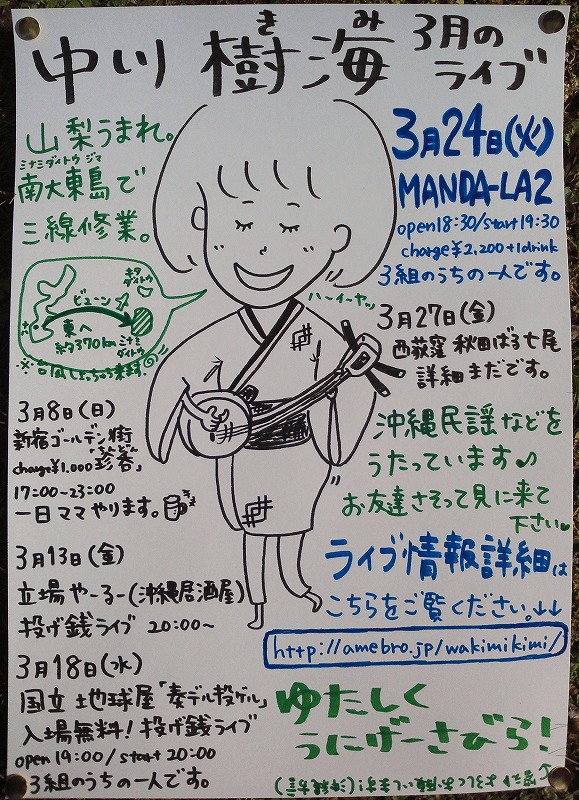 中川 樹海 3月の
きみ
ライブ
山梨うまれ。
ミナミダイトウジマ
南大東島で
三線修業。
キタ
ダイトウ
ビューン
東へ
約370km
ミナミ
ダイトウ
※台風しょっちゅう来ます
3月8日(日)
新宿ゴールデン街
charge¥1,000
17:00~23:00
一日ママやります。
3月13日(金)
立場やーるー(沖縄居酒屋)
投げ銭ライブ 20:00~
3月18日(水)
国立 地球屋「奏デル投ゲル」
入場無料!投げ銭ライブ
open 19:00/start 20:00
3組のうちの一人です。
3月24日(火)
MANDA-LA2
open18:30/start19:30
charge¥2,200+1drink
3組のうちの一人です。
ハーイーヤッ
3月27日(金)
西荻窪 秋田ばる七尾
詳細まだです。
沖縄民謡などを
うたっています♪
お友達さそって見に来て
下さい
ライブ情報詳細は
こちらをご覧ください。↓↓
http://amebro.jp/wakimikimi/
ゆたしく
うにげーさびら!